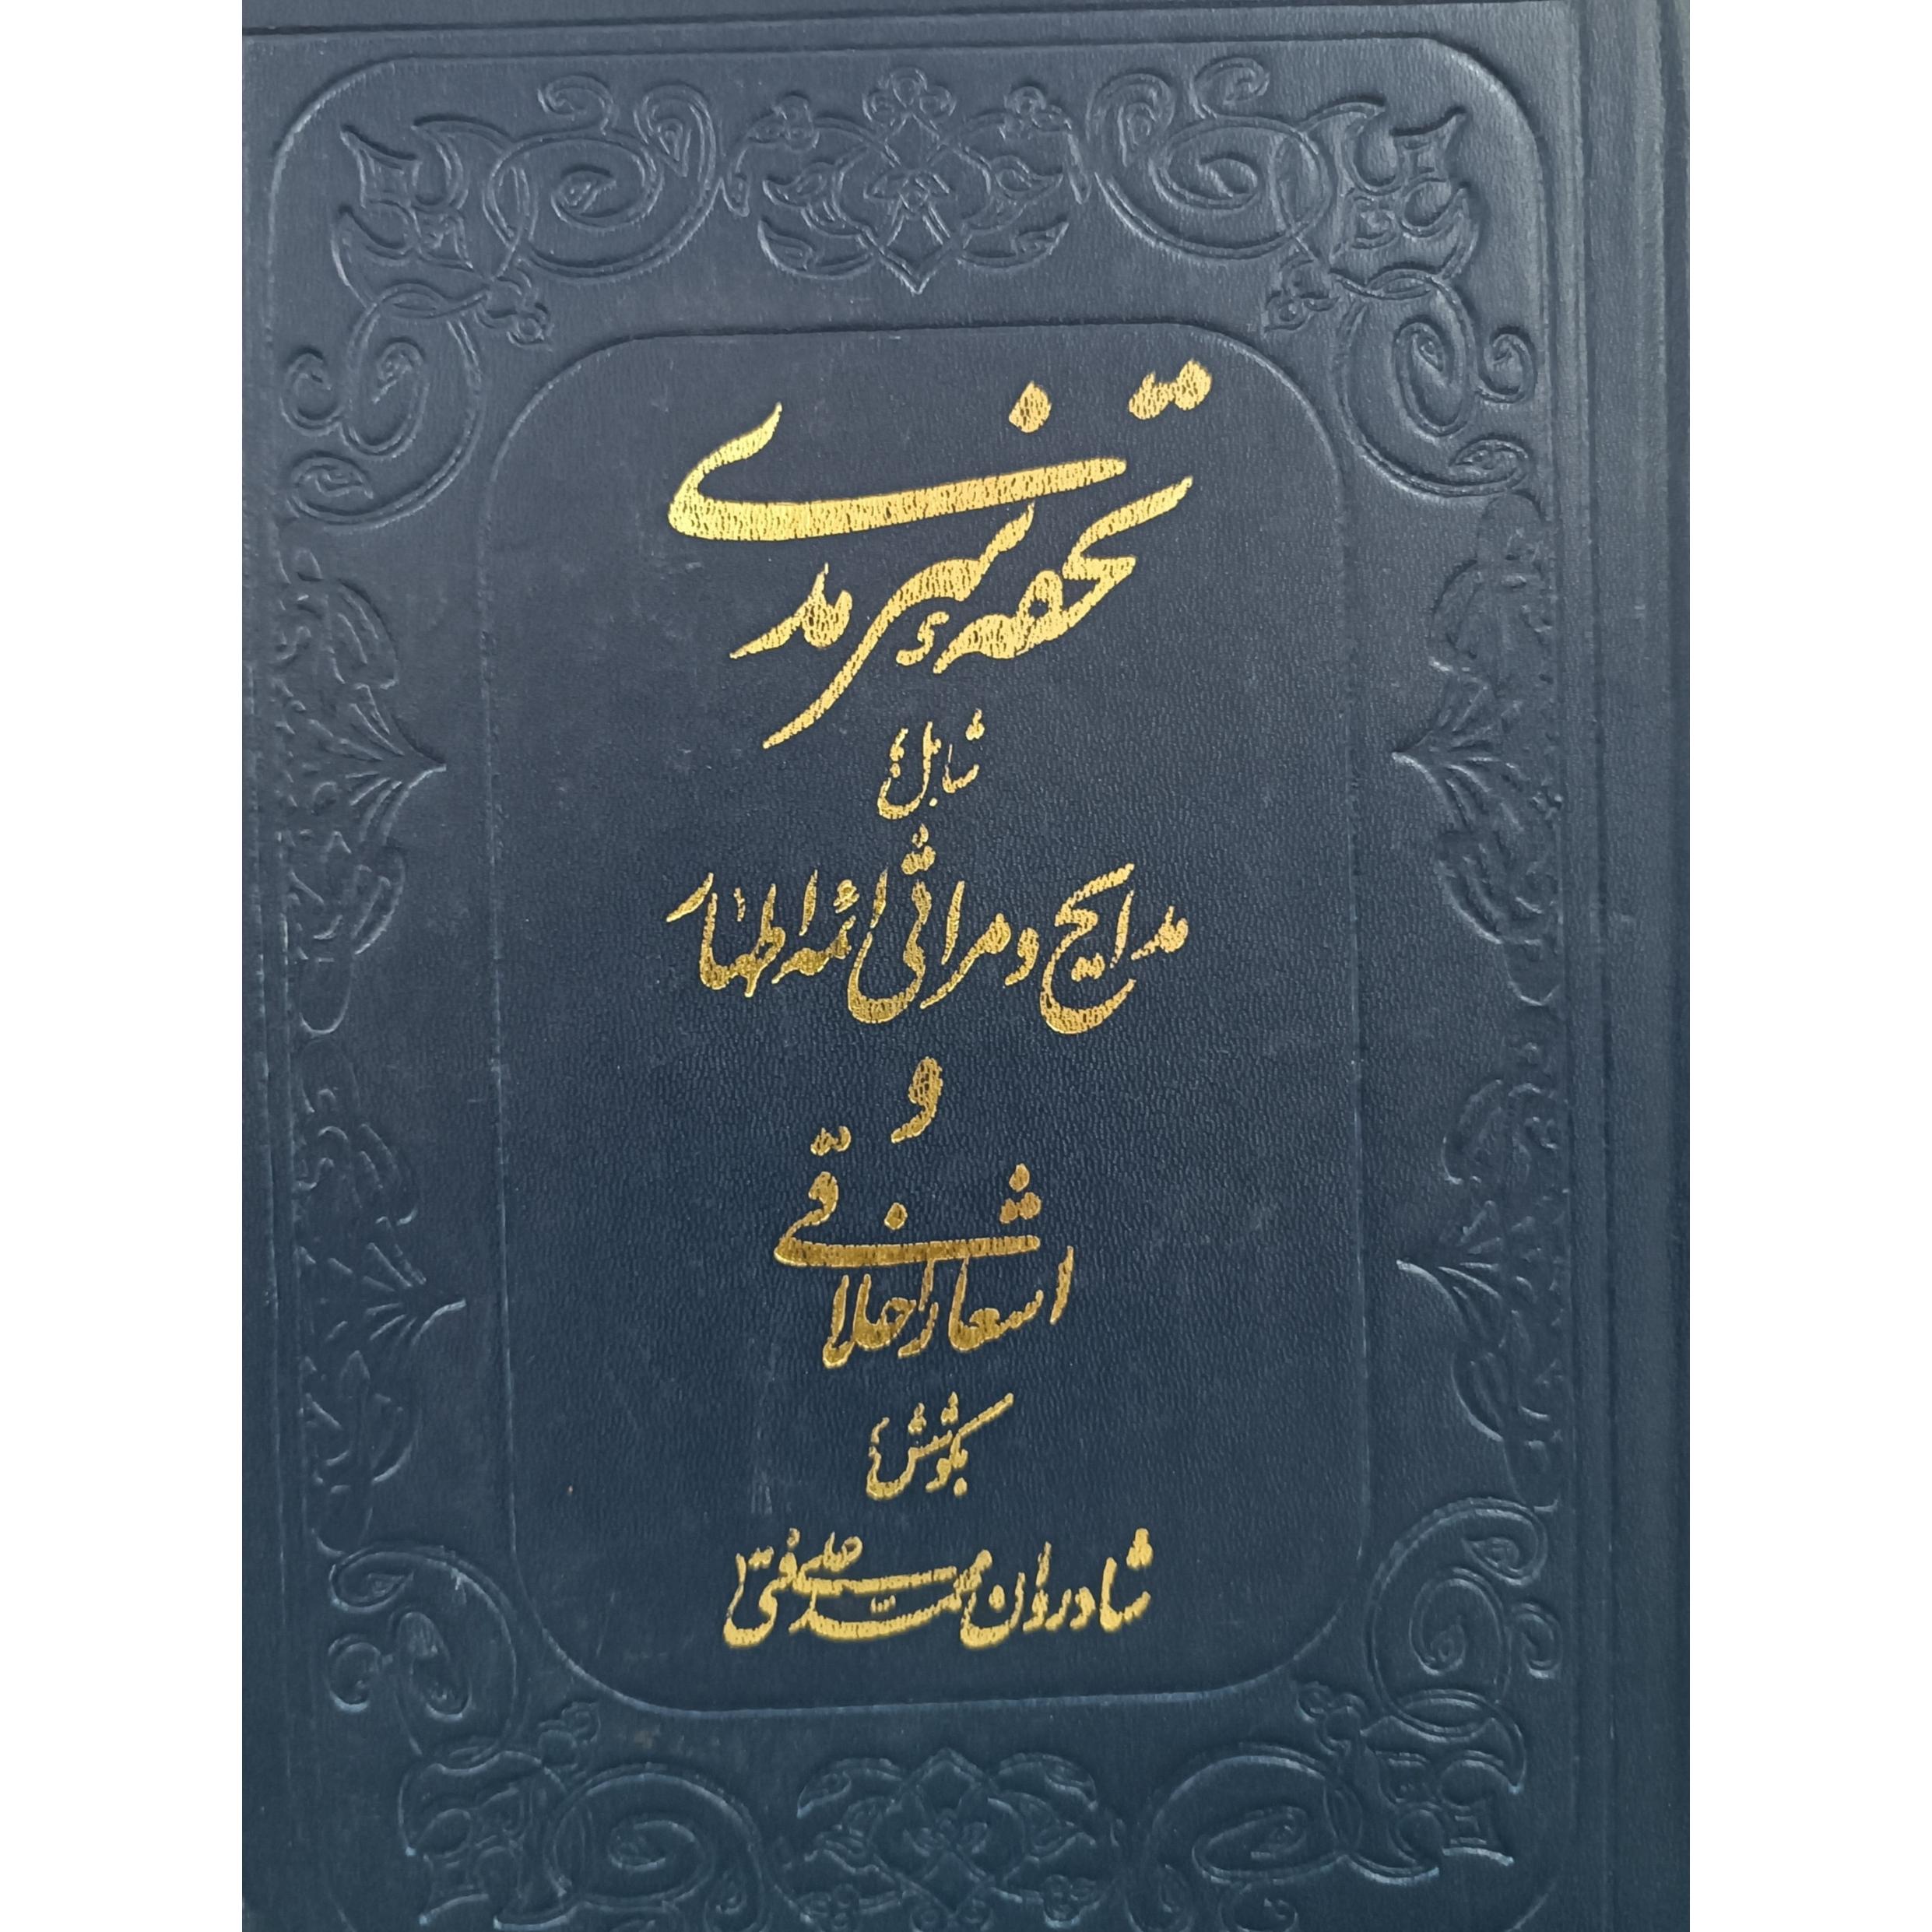 تحفهٔ سرمدی
شامل:
مدایح و مراثی ائمه اطهار
و
اشعار اخلاقی
بکوشش:
شادروان محمد علی فتی